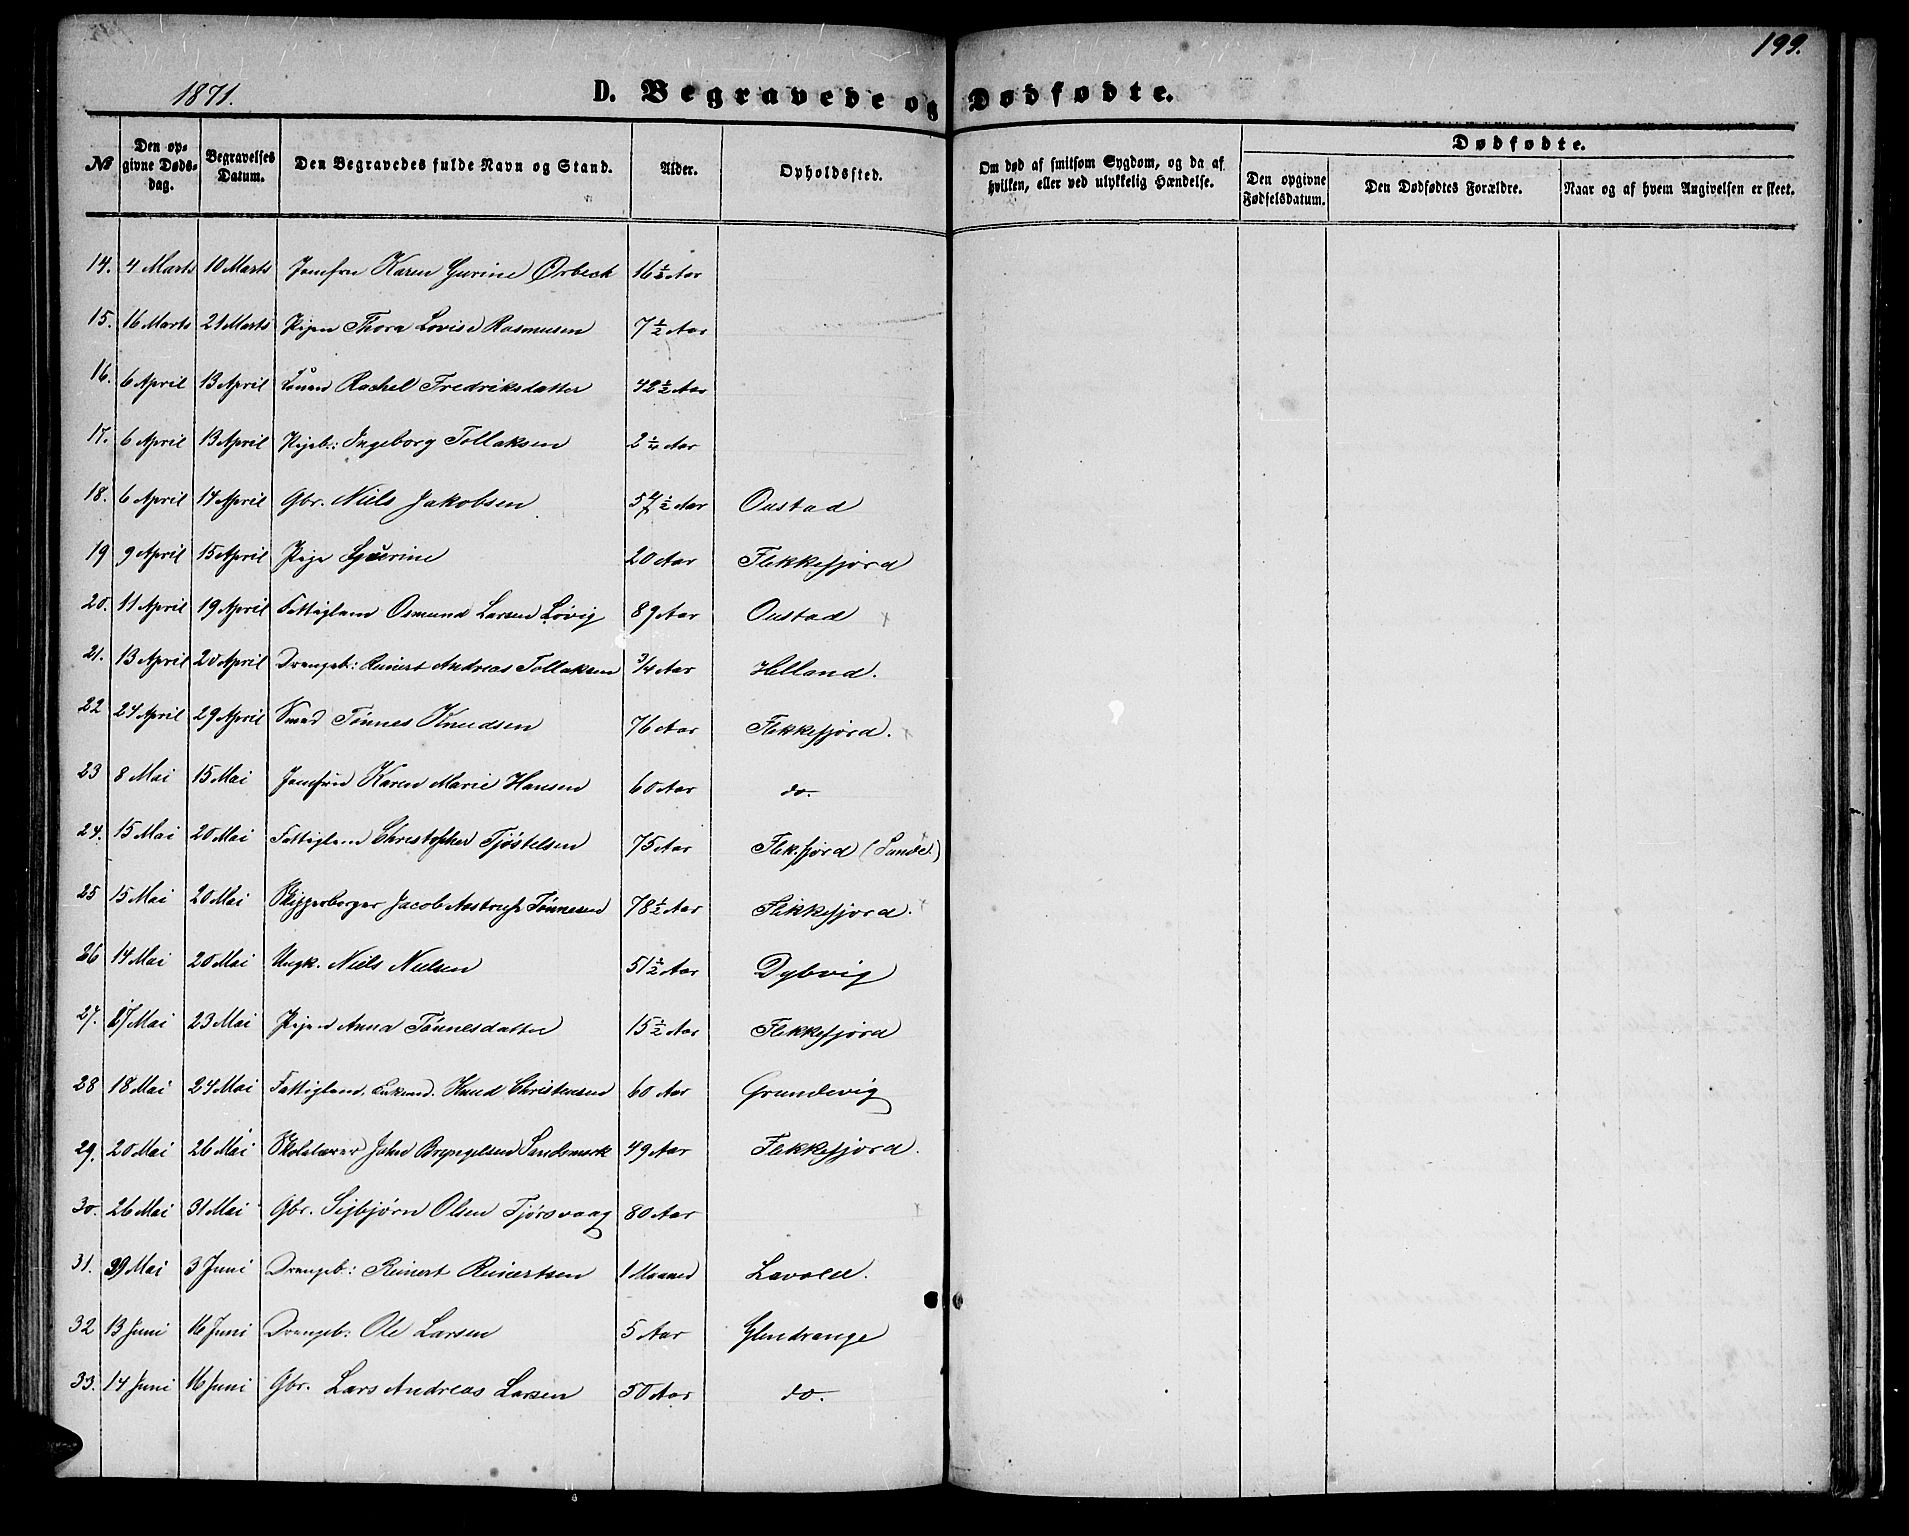 199.
1871.
D. Begravede og Dødfødte.
№
Den opgivne Dødsdag.
Begravelses Datum.
Den Begravedes fulde Navn og Stand.
Alder.
Opholdssted.
Om død af smitsom Sygdom, og da af hvilken, eller ved ulykkelig Hændelse.
Dødfødte.
Den opgivne Fødselsdatum.
Den Dødfødtes Forældre.
Naar og af hvem Angivelsen er skeet.
14. 4 Marts 10 Marts Jomfru Karen Gurine Ørbeck 16½ Aar
15. 16 Marts 21 Marts Pigen Thora Lovise Rasmusen 7½ Aar
16. 6 April 13 April Rachel Fredriksdatter 42½ Aar
17. 6 April 13 April Pigeb: Ingeborg Tollaksen 2¼ Aar
18. 6 April 14 April Gbr. Niels Jakobsen 57½ Aar Oustad
19 9 April 15 April Pige 20 Aar Flekkefjord
20. 11 April 19 April Fattiglem Osmund Larsen Løvig 89 Aar Oustad
21. 13 April 20 April Drengeb: Reinert Andreas Tollaksen ¾ Aar Helland.
22 24 April 29 April Smed Tønnes Knudsen 76 Aar Flekkefjord.
23 8 Mai 15 Mai Jomfru Karen Marie Hansen 60 Aar do.
24. 15 Mai 20 Mai Fattiglem Christopher Tjøstelsen 75 Aar Flek.fjord (Sunde.)
25 15 Mai 20 Mai Skipperborger Jacob Aastrup Tønnesen 78½ Aar Flekkefjord.
26 14 Mai 20 Mai Ungk. Niels Nielsen 51½ Aar Dybvig
27. 17 Mai 23 Mai Pigen Anna Tønnesdatter 15½ Aar Flekkefjord
28 18 Mai 24 Mai Fattiglem, Enkemd. Knud Christensen 60 Aar Grundevig
29. 20 Mai 26 Mai Skolelærer John Bryngelsen Sandsmark 49 Aar Flekkefjord.
30. 26 Mai 31 Mai Gbr. Sigbjørn Olsen Tjørsvaag 80 Aar
31. 29 Mai 3 Juni Drengeb: Reinert Reinertsen 1 Maaned Lavold.
32 13 Juni 16 Juni Drengeb: Ole Larsen 5 Aar Glendrange
33. 14 Juni 16 Juni Gbr. Lars Andreas Larsen 50 Aar do.